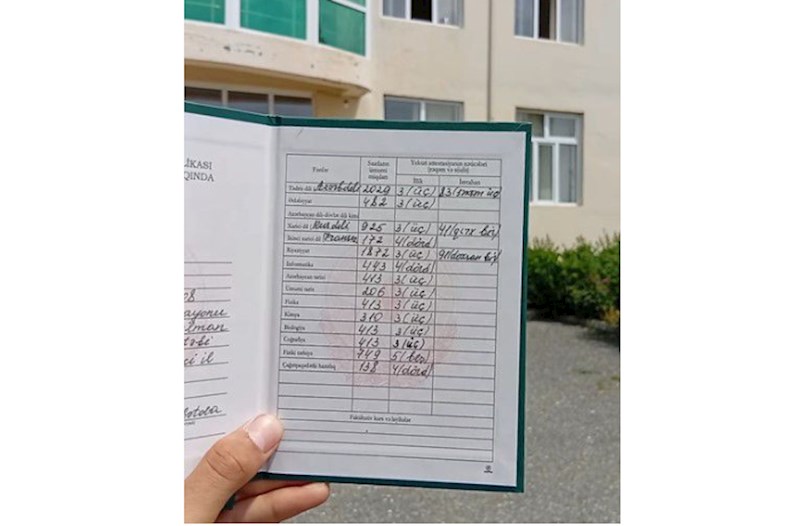 LİKASI
QINDA
Fənlər
Saatların ümumi miqdarı
Yekun attestasiyanın nəticələri (rəqəm və sözlə)
İllik
İmtahan
Tədris dili Azərb. dili 2029 3 (üç) 83 (səksən üç)
Ədəbiyyat 482 3 (üç)
Azərbaycan dili-dövlət dili kimi
Xarici dil Rus dili 925 3 (üç) 41 (qırx bir)
İkinci xarici dil Fransız 172 4 (dörd)
Riyaziyyat 1872 3 (üç) 91 (doxsan bir)
İnformatika 443 4 (dörd)
Azərbaycan tarixi 413 3 (üç)
Ümumi tarix 206 3 (üç)
Fizika 413 3 (üç)
Kimya 310 3 (üç)
Biologiya 413 3 (üç)
Coğrafiya 413 3 (üç)
Fiziki tərbiyə 749 5 (beş)
Çağırışaqədərki hazırlıq 138 4 (dörd)
Fakültativ kurs və layihələr
ayonu
ci il